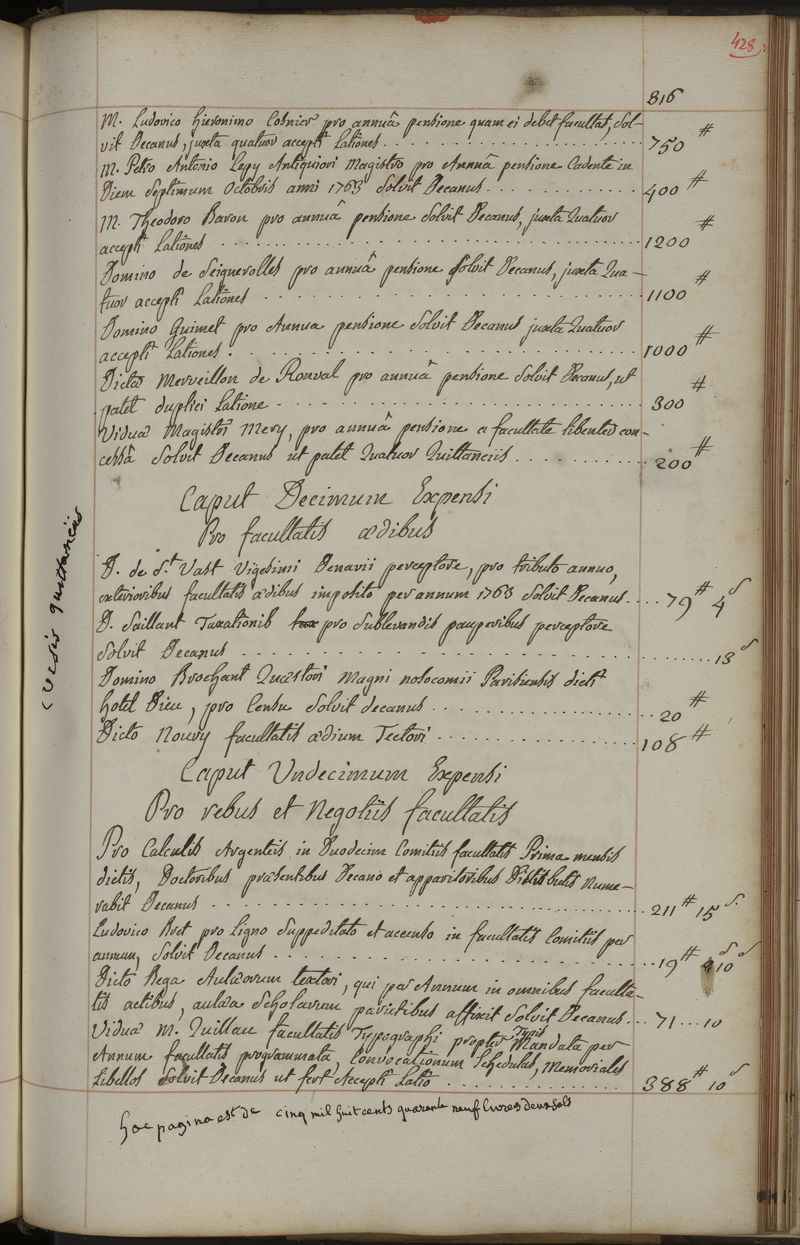 428
816
M. Ludovico hieronimo Cosnier pro annuâ pensione quam ei debet facultas, Sol-
vit Decanus, juxta quatuor accepti Lationes . . . 750 ₶
M. Petro Antonio Lepy Antiquiori Magistro pro Annuâ pensione Cadente in
Diem Septimum Octobris anni 1763 Solvit Decanus . . . 400 ₶
M. Theodoro Baron pro annuâ pensione Solvit Decanus, juxta Quatuor
accepti Lationes . . . 1200 ₶
Domino de Seignerolles pro annuâ pensione Solvit Decanus, juxta Qua-
tuor accepti Lationes . . . 1100 ₶
Domino Guimet pro Annua pensione Solvit Decanus juxta Quatuor
accepti Lationes . . . 1000 ₶
Dictae Merveillon de Ronval pro annuâ pensione Solvit Decanus, ut
patet duplici Latione . . . 300 ₶
Viduæ Magistri Mery, pro annuâ pensione a facultate libenter con-
cessâ Solvit Decanus ut patet Quatuor Quittanciis . . . 200 ₶
Caput Decimum Expensi
Pro facultatis ædibus
D. de St. Vast Vigesimi Denarii perceptore, pro tributo annuo,
exterioribus facultatis ædibus imposito per annum 1763 Solvit Decanus . . . 79 ₶ 4 s
D. Saillant Taxationib pro Sublevandis pauperibus perceptore
Solvit Decanus . . . 13 s
Domino Brochant Quæstori Magni nosocomii Parisiensis dicti
hotel Dieu, pro Censu Solvit decanus . . . 20 ₶
Dicto Nouvy facultatis ædium Tectori . . . 108 ₶
(Visis quittanciis
Caput Undecimum Expensi
Pro rebus et Negotiis facultatis
Pro Calculis Argenteis in Duodecim Comitiis facultatis Prima mensis
dictis, Doctoribus præsentibus Decano et apparitoribus Distributis Nume-
rabit Decanus . . . 211 ₶ 15 s
Ludovico Bret pro Ligno Suppeditato et accenso in facultatis Comitiis per
annum, Solvit Decanus . . . 19 ₶ 10 s
Dicto Rega Aulæorum textori, qui per Annum in omnibus faculta-
tis actibus, aulæa Scholarum parietibus affixit Solvit Decanus . . . 71 . . . 10
Viduæ M. Quillau facultatis Typographi propter Typis Mandata per
Annum facultatis programmata, Convocationum Schedulas, Memoriales
Libellos Solvit Decanus ut fert Accepti Latio . . . 388 ₶ 10 s
hæc pagina est de cinq mil huit cents quarante neuf livres deux sols